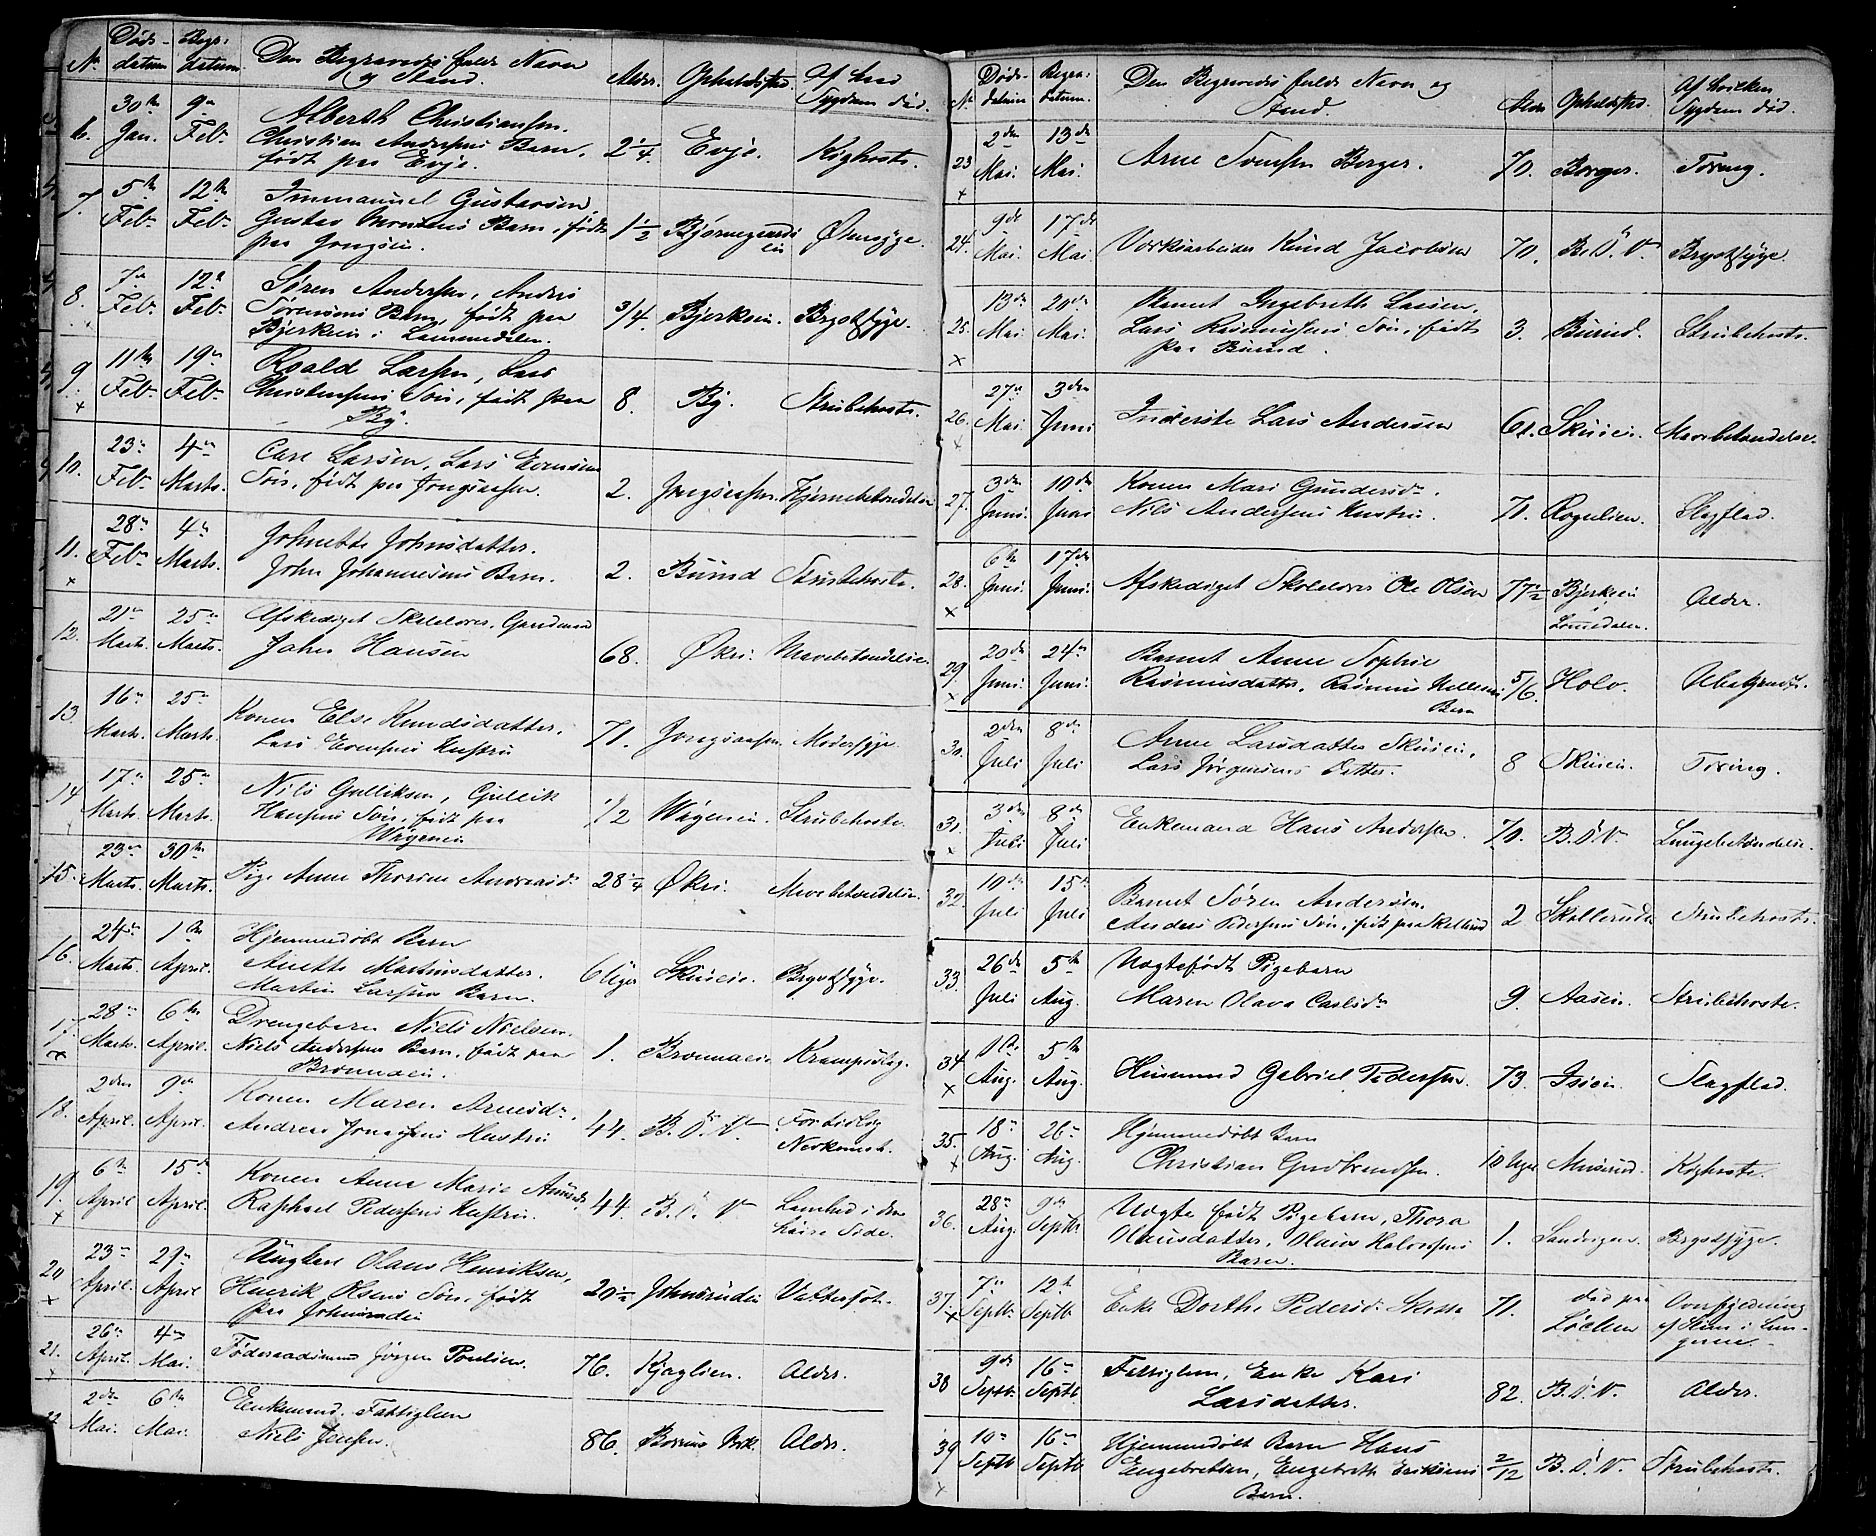 No. Døds- datum Begr. datum Den Begravedes fulde Navn og Stand. Alder. Opholdssted. Af hvad Sygdom død.
6. 30te Jan. 9de Feb. Alberth Christiansen.
Christian Andersens Barn,
født paa Evje. 2 1/4. Evje. Kighoste.
7. 5te Feb. 12te Feb. Immanuel Gustavsen,
Gustav Barn, født
paa Jongseie. 1 1/2 Bjørnegaards
eie Øiensyge.
8. 7de Feb. 12te Feb. Søren Andersen, Anders
Sørensens Barn, født paa
Bjerkeeie i Lommedalen. 3/4. Bjerkeeie. Brystsyge.
9. x 11te Feb. 19de Feb. Roald Larsen, Lars
Christensens Søn, født paa
By. 8. By. Strubehoste.
10. 23de Feb. 4de Marts. Carl Larsen, Lars Evensens
Søn, født paa Jongsaasen. 2. Jongsaasen. Hjernebetændelse
11. x 28de Feb. 4de Marts. Johnette Johnsdatter.
John Johannesens Barn. 2. Burud Strubehoste.
12. 21de Marts. 25de Marts. Afskediget Skolelærer, Gaardmand
John Hansen 68. Økri. Mavebetændelse.
13. 16de Marts. 25de Marts. Konen Else Knudsdatter,
Lars Evensens Hustru 71. Jongsaasen. Modersyge.
14 17de Marts. 25de Marts. Nils Gulliksen, Gullik
Hansens Søn, født paa
Wøyeneie 1/2 Wøyeneie. Strubehoste.
15. 23de Marts. 30te Marts. Pige Anne Thorine Andreasdr. 28 1/4 Økri. Mavebetændelse.
16. 24de Marts. 1ste April. Hjemmedøbt Barn
Anette Martinsdatter.
Martin Larsens Barn. 6 Uger Skuieie. Brystsyge.
17. x 28de Marts. 6te April. Drengebarn Niels Nielsen.
Niels Andersens Barn, født paa
Brommaeie. 1. Brommaeie Krampeslag.
18. 2den April. 9de April. Konen Maren Arnesdr.
Andreas Jonassens Hustru 44. B. O. V. Fortidlig
Nedkomst.
19. x 6te April 15de April. Konen Anne Marie
Raphael Pedersens Hustru. 44. B. O. V. Lamhed i den
høire Side.
20 x 23de April. 29de April Ungkarl Olaus Henriksen,
Henrik Olsens Søn, født
paa Johnsrudeie 20 1/2 Johnsrudeie Vattersot.
21. x 26de April. 4de Mai. Føderaadsmand Jørgen Poulsen. 76. Kjaglien. Alder.
22 2den Mai. 6te Mai. Enkemand. Fattiglem
Niels Jensen. 86. Bærums Værk. Alder.
No. Døds- datum Begra. datum. Den Begravedes fulde Navn og Stand. Alder Opholdssted. Af hvilken Sygdom død.
23 x 2den Mai. 13de Mai. Arne Svensen Berger. 70. Berger. Tæring.
24. 9de Mai. 17de Mai Værksarbeider Knud Jacobsen 70. B. O. V. Brystsyge.
25. x 13de Mai. 20de Mai. Barnet Ingebreth Larsen,
Lars Rasmussens Søn, født
paa Burud. 3. Burud. Strubehoste.
26. x 27de Mai. 3den Juni Inderste Lars Andersen 61. Skuieie. Mavebetændelse.
27. 3den Juni. 10de Juni Konen Mari Gundersdr.
Nils Andersens Hustru. 71. Rognlien. Slagflod.
28. x 6te Juni. 17de Juni. Afskediget Skolelærer Ole Olsen 77 1/2 Bjerkeeie
i
Lomedalen. Alder.
29. x 20de Juni. 24de Juni. Barnet Anne Sophie
Rasmusdatter, Rasmus
Barn 5/6. Holo. Ubekjendt.
30. 2den Juli 8de Juli Anne Larsdatter Skuieie,
Lars Jørgensens Datter. 8 Skuieie. Tæring.
31. x 3die Juli 8de Juli Enkemand Hans Andersen. 70. B. O. V. Lungebetændelse.
32. 10de Juli 15de Juli Barnet Søren Andersen.
Anders Pedersens Søn, født paa Skollerud 2 Skollerud Strubehoste.
33. 26de Juli 5te Aug. Uægtefødt Pigebarn
Maren Olava Carlsdr. 9. Aaseie. Strubehoste.
34 x 1ste Aug. 5te Aug. Huusmand Gabriel Pedersen. 73. Isieie. Slagflod.
35. x 18de Aug. 26de Aug. Hjemmedøbt Barn
Christian Gudbrandsen. 10 Uger Kighoste.
36. 28de Aug. 9de Septb. Uægte født Pigebarn, Thora
Olausdatter, Olaus Halvorsens
Barn. 1. Sandvigen. Brystsyge.
37. x 7de Septb. 12te Septb. Enke Dorthe Pedersdr. 71. død paa
Løkken
af Sliim i Lun-
gerne.
38 9de Septb. 16de Septb. Fattiglem, Enke Kari
Larsdatter. 82. B. O. V. Alder.
39 x 10de Septb 16de Septb Hjemmedøbt Barn Hans
Engebretsen, Engebreth Eriksens
Barn. 2/12 B. O. V. Strubehoste.